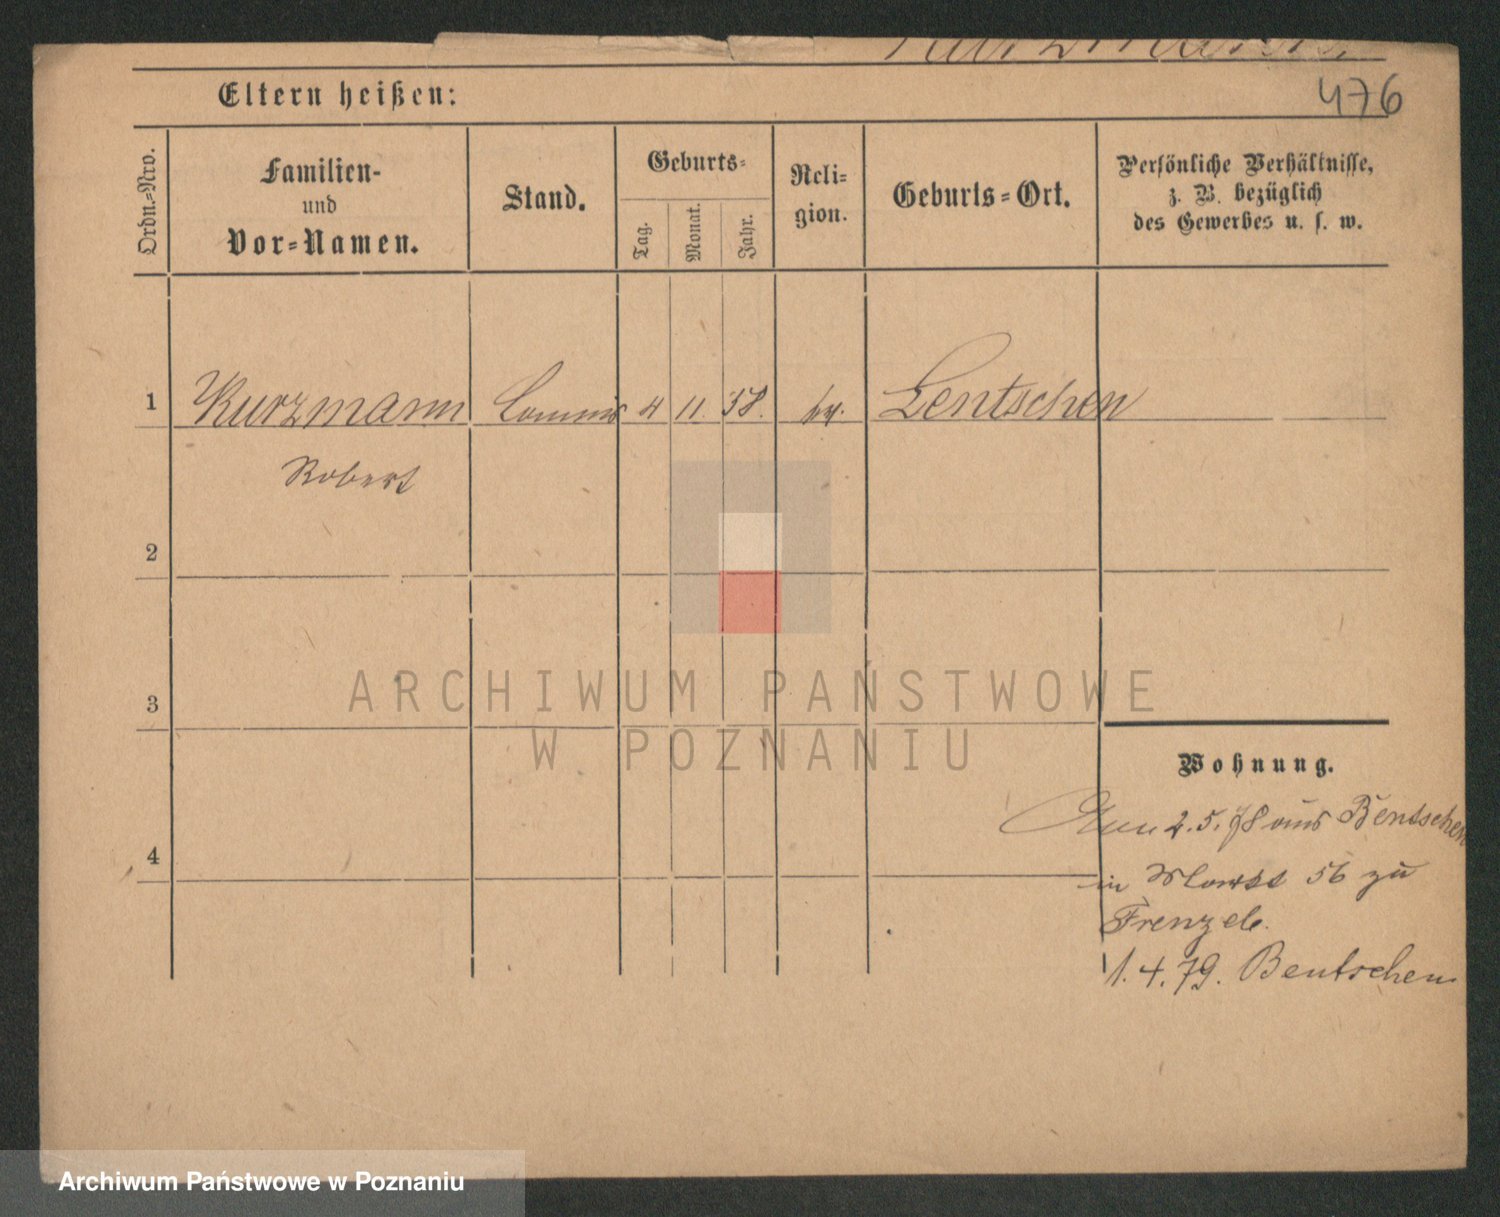 Kurzmann.
Eltern heißen:
476
Ordn.-Nro.
Familien-
und
Vor-Namen.
Stand.
Geburts-
Tag.
Monat.
Jahr.
Reli-
gion.
Geburts-Ort.
Persönliche Verhältnisse,
z. B. bezüglich
des Gewerbes u. s. w.
1
Kurzmann
Commis
4
11.
58.
Bentschen
Robert
2
3
ARCHIWUM PAŃSTWOWE
W POZNANIU
Wohnung.
2.5.78 aus Bentschen
4
in Markt 56 zu
Frenzel.
1.4.79. Bentschen
Archiwum Państwowe w Poznaniu